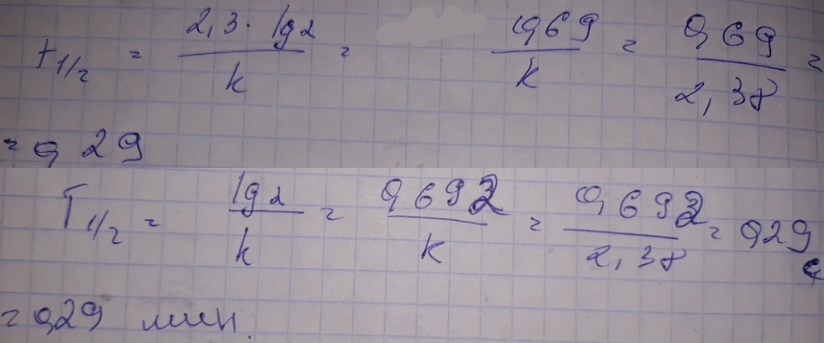 t1/2 = 2,3 · lg2 / k = 0,69 / k = 0,69 / 2,38 =
= 0,29
T1/2 = lg2 / k = 0,692 / k = 0,692 / 2,38 = 0,29
= 0,29 мин.